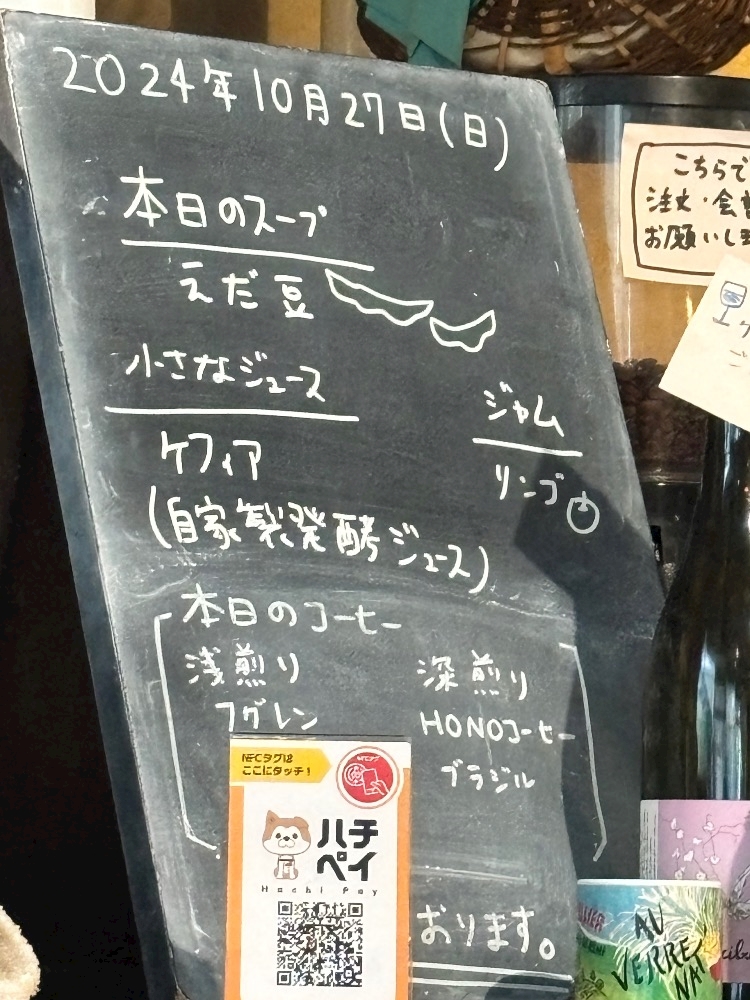 2024年10月27日(日)
本日のスープ
えだ豆
小さなジュース
ケフィア
(自家製発酵ジュース)
ジャム
リンゴ
本日のコーヒー
浅煎り
フグレン
深煎り
HONOコーヒー
ブラジル
おります。
NFCタグは
ここにタッチ！
ハチ
ペイ
Hachi Pay
こちらで
注文・会
お願いしま
AU
VERRE
NA